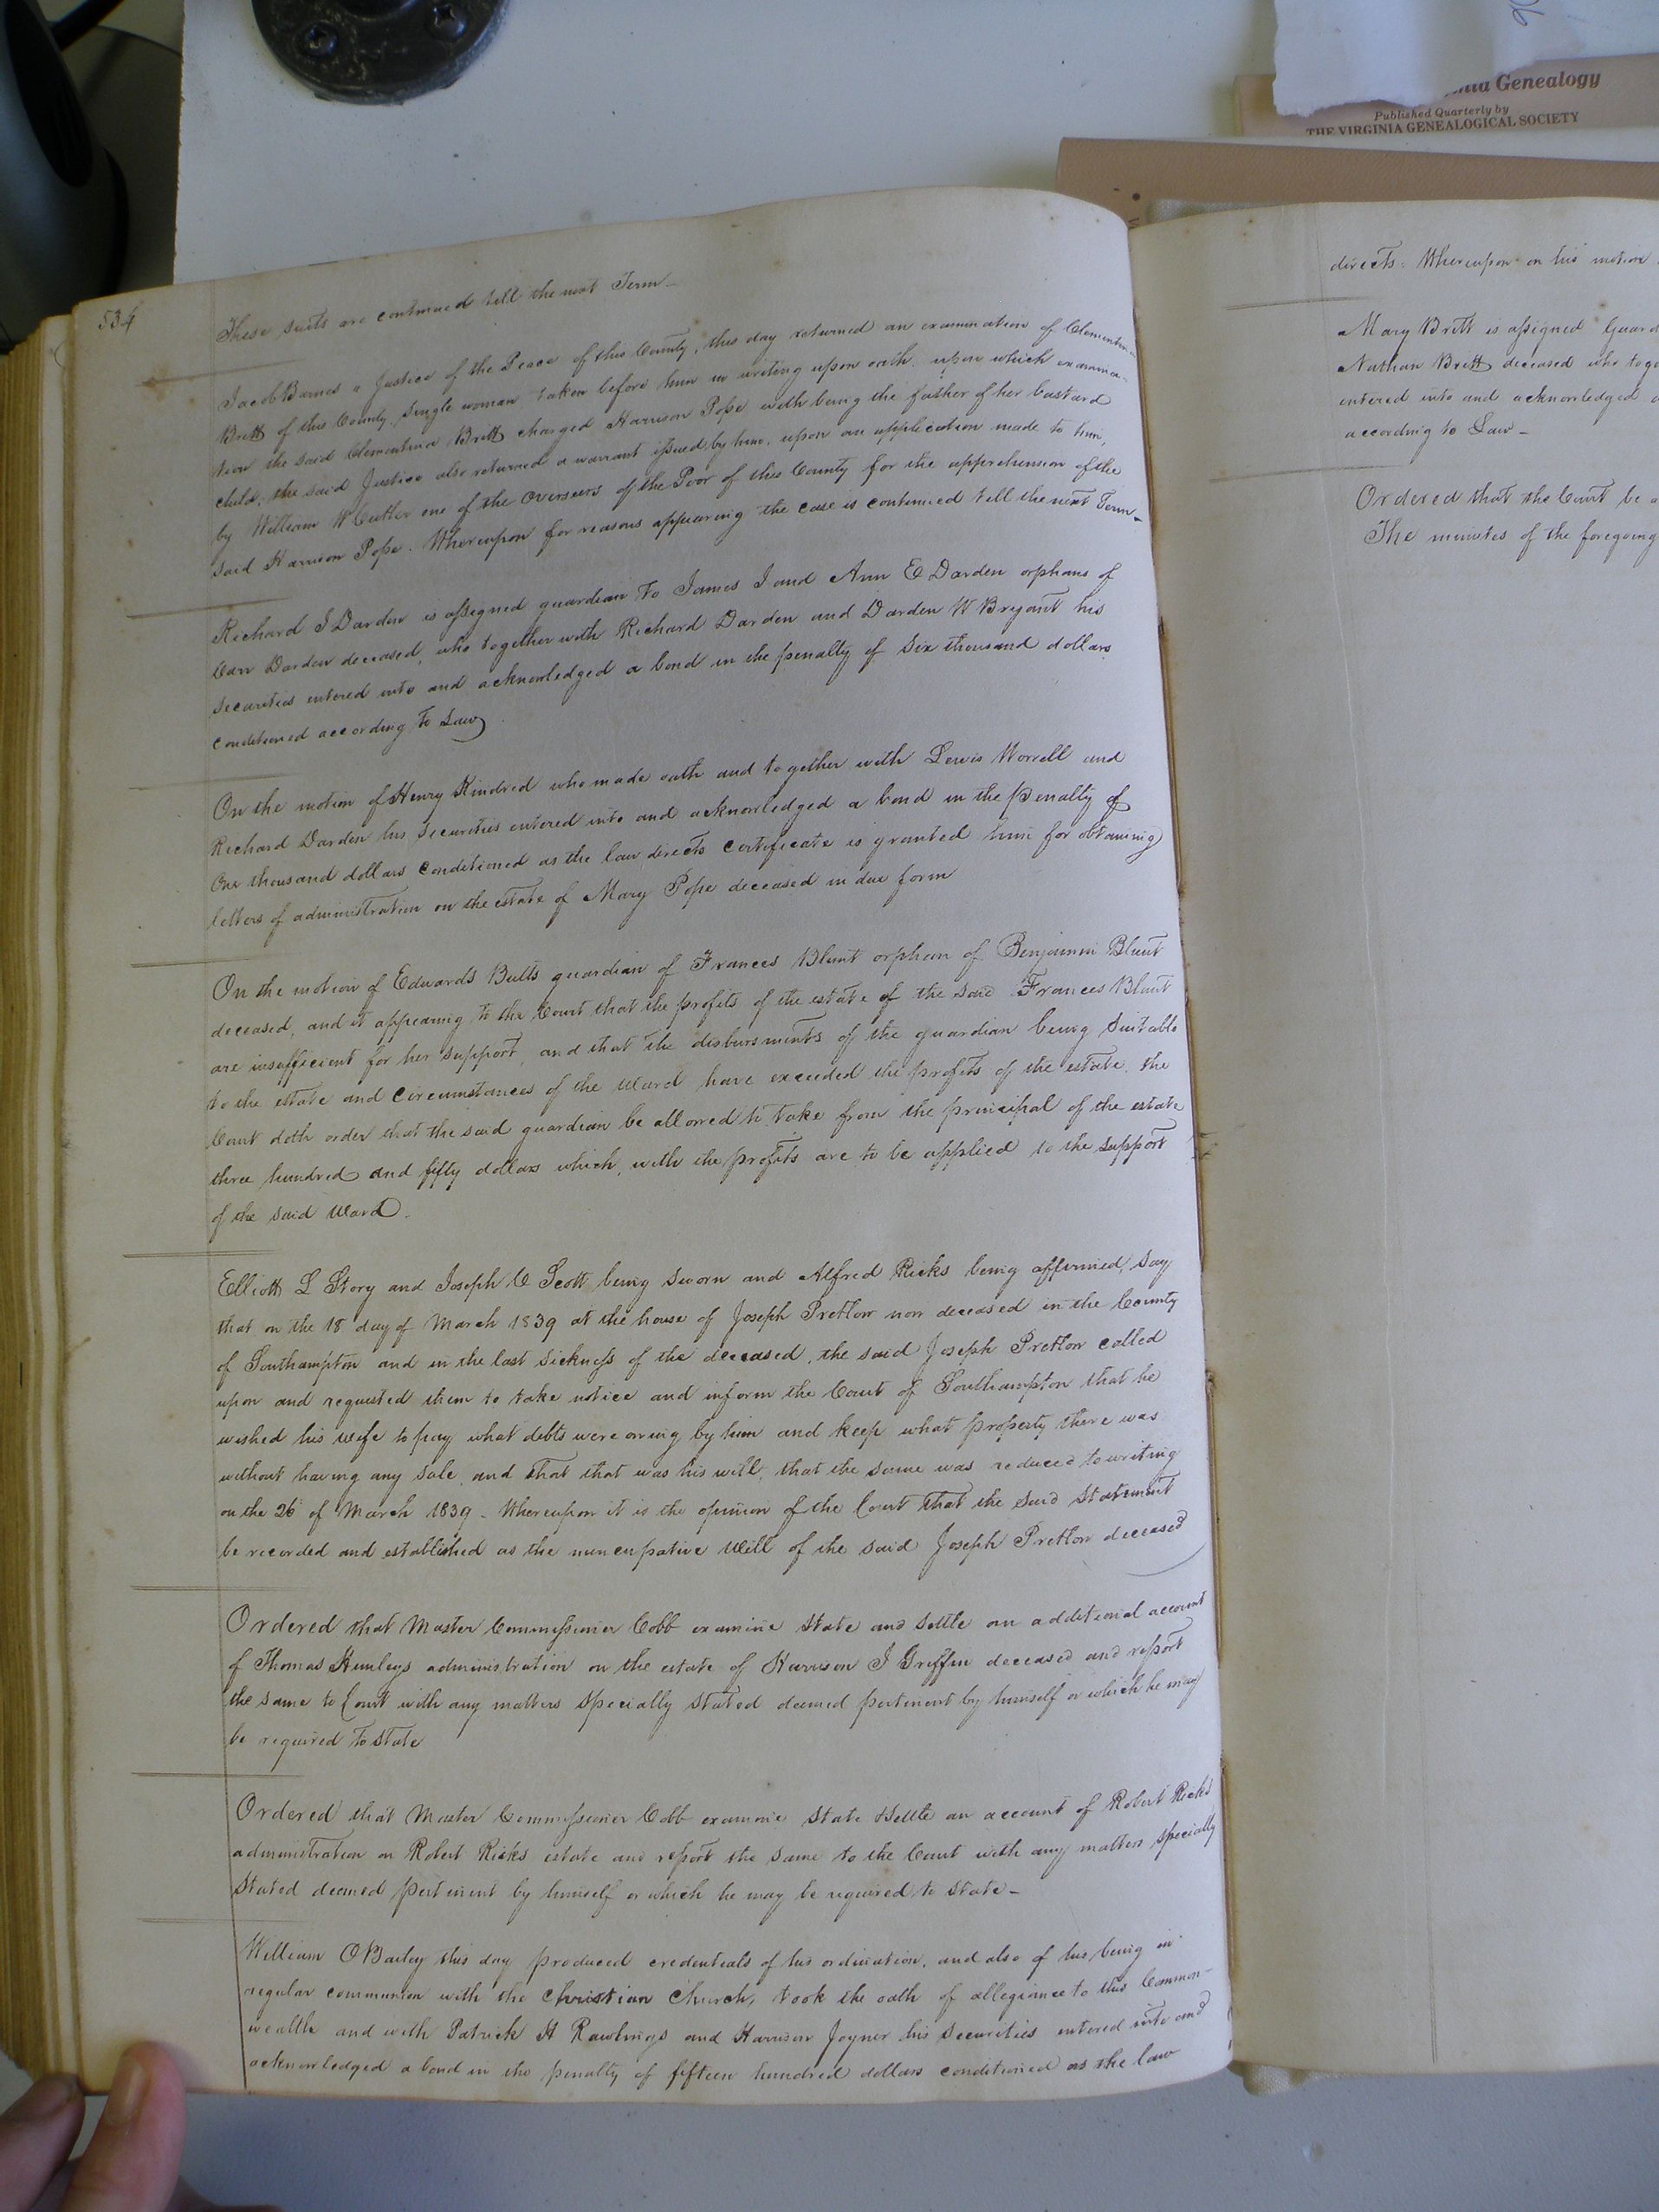 nia Genealogy
Published Quarterly by
THE VIRGINIA GENEALOGICAL SOCIETY
534
These suits are continued till the next Term -
Jacob Barnes a Justice of the Peace of this County, this day returned an examination of Clementina
Britt of this County, single woman, taken before him in writing upon oath. upon which examina-
tion the said Clementina Britt charged Harrison Pope with being the father of her bastard
child, the said Justice also returned a warrant issued by him, upon an application made to him,
by William W Cutler one of the Overseers of the Poor of this County for the apprehension of the
said Harrison Pope. Whereupon for reasons appearing the case is continued till the next Term -
Richard J Darden is assigned guardian to James J and Ann E Darden orphans of
Carr Darden deceased, who together with Richard Darden and Darden W Bryant his
securities entered into and acknowledged a bond in the penalty of Six thousand dollars
conditioned according to Law
On the motion of Henry Kindred who made oath and together with Lewis Worrell and
Richard Darden his securities entered into and acknowledged a bond in the Penalty of
One thousand dollars conditioned as the law directs certificate is granted him for obtaining
letters of administration on the estate of Mary Pope deceased in due form
On the motion of Edwards Butts guardian of Frances Blunt orphan of Benjamin Blunt
deceased, and it appearing to the Court that the profits of the estate of the said Frances Blunt
are insufficient for her support, and that the disbursments of the guardian being suitable
to the estate and circumstances of the Ward have exceeded the profits of the estate, the
Court doth order that the said guardian be allowed to take from the principal of the estate
three hundred and fifty dollars which, with the profits are to be applied to the support
of the said Ward.
Elliott L Story and Joseph C Scott being sworn and Alfred Ricks being affirmed, say
that on the 18 day of March 1839 at the house of Joseph Pretlow now deceased in the County
of Southampton and in the last sickness of the deceased, the said Joseph Pretlow called
upon and requested them to take notice and inform the Court of Southampton that he
wished his wife to pay what debts were owing by him and keep what property there was
without having any sale, and that that was his will, that the same was reduced to writing
on the 26 of March 1839 - Whereupon it is the opinion of the Court that the said statement
be recorded and established as the nuncupative Will of the said Joseph Pretlow deceased
Ordered that Master Commissioner Cobb examine state and settle an additional account
of Thomas Hunleys administration on the estate of Harrison J Griffin deceased and report
the same to Court with any matters specially stated deemed pertinent by himself or which he may
be required to state
Ordered that Master Commissioner Cobb examine state & settle an account of Robert Ricks
administration on Robert Ricks estate and report the same to the Court with any matters specially
stated deemed pertinent by himself or which he may be required to state -
William O Bailey this day produced credentials of his ordination, and also of his being in
regular communion with the Christian Church, took the oath of allegiance to this Common-
wealth and with Patrick H Rawlings and Harrison Joyner his securities entered into and
acknowledged a bond in the penalty of fifteen hundred dollars conditioned as the law
directs. Whereupon on his motion
Mary Britt is assigned Guard
Nathan Britt deceased who toge
entered into and acknowledged a
according to Law -
Ordered that the Court be a
The minutes of the foregoing